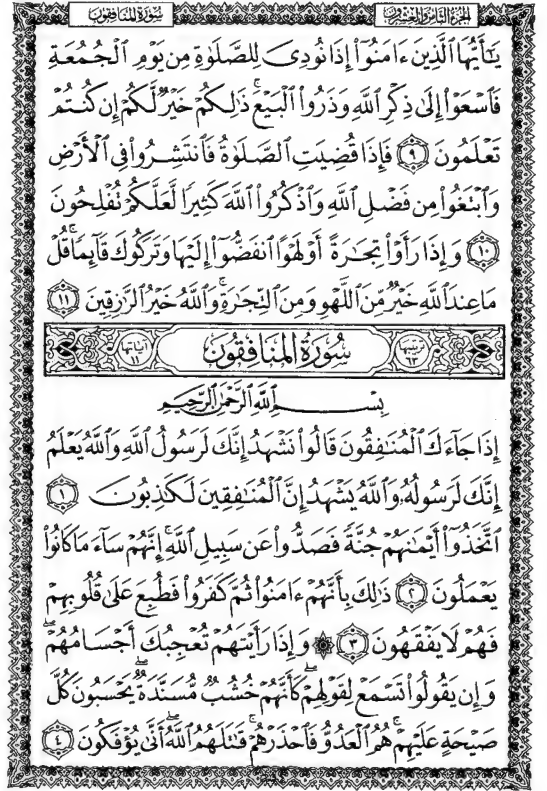 الجزء الثامن والعشرون
سورة المنافقون
يَٰٓأَيُّهَا ٱلَّذِينَ ءَامَنُوٓا۟ إِذَا نُودِىَ لِلصَّلَوٰةِ مِن يَوْمِ ٱلْجُمُعَةِ
فَٱسْعَوْا۟ إِلَىٰ ذِكْرِ ٱللَّهِ وَذَرُوا۟ ٱلْبَيْعَ ۚ ذَٰلِكُمْ خَيْرٌ لَّكُمْ إِن كُنتُمْ
تَعْلَمُونَ ٩ فَإِذَا قُضِيَتِ ٱلصَّلَوٰةُ فَٱنتَشِرُوا۟ فِى ٱلْأَرْضِ
وَٱبْتَغُوا۟ مِن فَضْلِ ٱللَّهِ وَٱذْكُرُوا۟ ٱللَّهَ كَثِيرًا لَّعَلَّكُمْ تُفْلِحُونَ
١٠ وَإِذَا رَأَوْا۟ تِجَٰرَةً أَوْ لَهْوًا ٱنفَضُّوٓا۟ إِلَيْهَا وَتَرَكُوكَ قَآئِمًا ۚ قُلْ
مَا عِندَ ٱللَّهِ خَيْرٌ مِّنَ ٱللَّهْوِ وَمِنَ ٱلتِّجَٰرَةِ ۚ وَٱللَّهُ خَيْرُ ٱلرَّٰزِقِينَ ١١
ترتيبها ٦٣ سُورَةُ المُنَافِقُونَ آياتها ١١
بِسْمِ ٱللَّهِ ٱلرَّحْمَٰنِ ٱلرَّحِيمِ
إِذَا جَآءَكَ ٱلْمُنَٰفِقُونَ قَالُوا۟ نَشْهَدُ إِنَّكَ لَرَسُولُ ٱللَّهِ ۗ وَٱللَّهُ يَعْلَمُ
إِنَّكَ لَرَسُولُهُۥ وَٱللَّهُ يَشْهَدُ إِنَّ ٱلْمُنَٰفِقِينَ لَكَٰذِبُونَ ١
ٱتَّخَذُوٓا۟ أَيْمَٰنَهُمْ جُنَّةً فَصَدُّوا۟ عَن سَبِيلِ ٱللَّهِ ۚ إِنَّهُمْ سَآءَ مَا كَانُوا۟
يَعْمَلُونَ ٢ ذَٰلِكَ بِأَنَّهُمْ ءَامَنُوا۟ ثُمَّ كَفَرُوا۟ فَطُبِعَ عَلَىٰ قُلُوبِهِمْ
فَهُمْ لَا يَفْقَهُونَ ٣ ۞ وَإِذَا رَأَيْتَهُمْ تُعْجِبُكَ أَجْسَامُهُمْ ۖ
وَإِن يَقُولُوا۟ تَسْمَعْ لِقَوْلِهِمْ ۖ كَأَنَّهُمْ خُشُبٌ مُّسَنَّدَةٌ ۖ يَحْسَبُونَ كُلَّ
صَيْحَةٍ عَلَيْهِمْ ۚ هُمُ ٱلْعَدُوُّ فَٱحْذَرْهُمْ ۚ قَٰتَلَهُمُ ٱللَّهُ ۖ أَنَّىٰ يُؤْفَكُونَ ٤